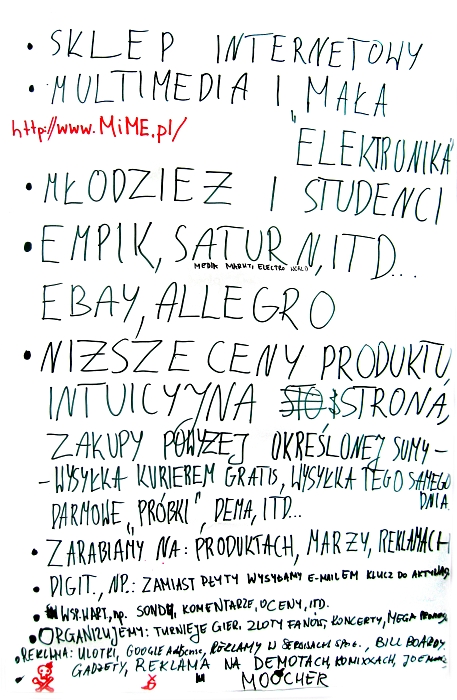 • SKLEP INTERNETOWY
• MULTIMEDIA I „MAŁA
http://www.MiME.pl/
ELEKTRONIKA"
• MŁODZIEŻ I STUDENCI
• EMPIK, SATURN, ITD...
MEDIA MARKT, ELECTRO WORLD
EBAY, ALLEGRO
• NIŻSZE CENY PRODUKTU,
INTUICYJNA STRONA,
ZAKUPY POWYŻEJ OKREŚLONEJ SUMY –
– WYSYŁKA KURIEREM GRATIS, WYSYŁKA TEGO SAMEGO
DNIA.
DARMOWE „PRÓBKI", DEMA, ITD...
• ZARABIAMY NA: PRODUKTACH, MARŻY, REKLAMACH
• DIGIT., NP.: ZAMIAST PŁYTY WYSYŁAMY E-MAILEM KLUCZ DO
• WSP. WART, np. SONDY, KOMENTARZE, OCENY, ITD.
• ORGANIZUJEMY: TURNIEJE GIER, ZLOTY FANÓW, KONCERTY, MEGA
• REKLAMA: ULOTKI, GOOGLE AdSense, REKLAMY W SERWISACH BILL BOARDY,
GADŻETY, REKLAMA NA DEMOTACH, KOMIXXACH, JOE
MOOCHER